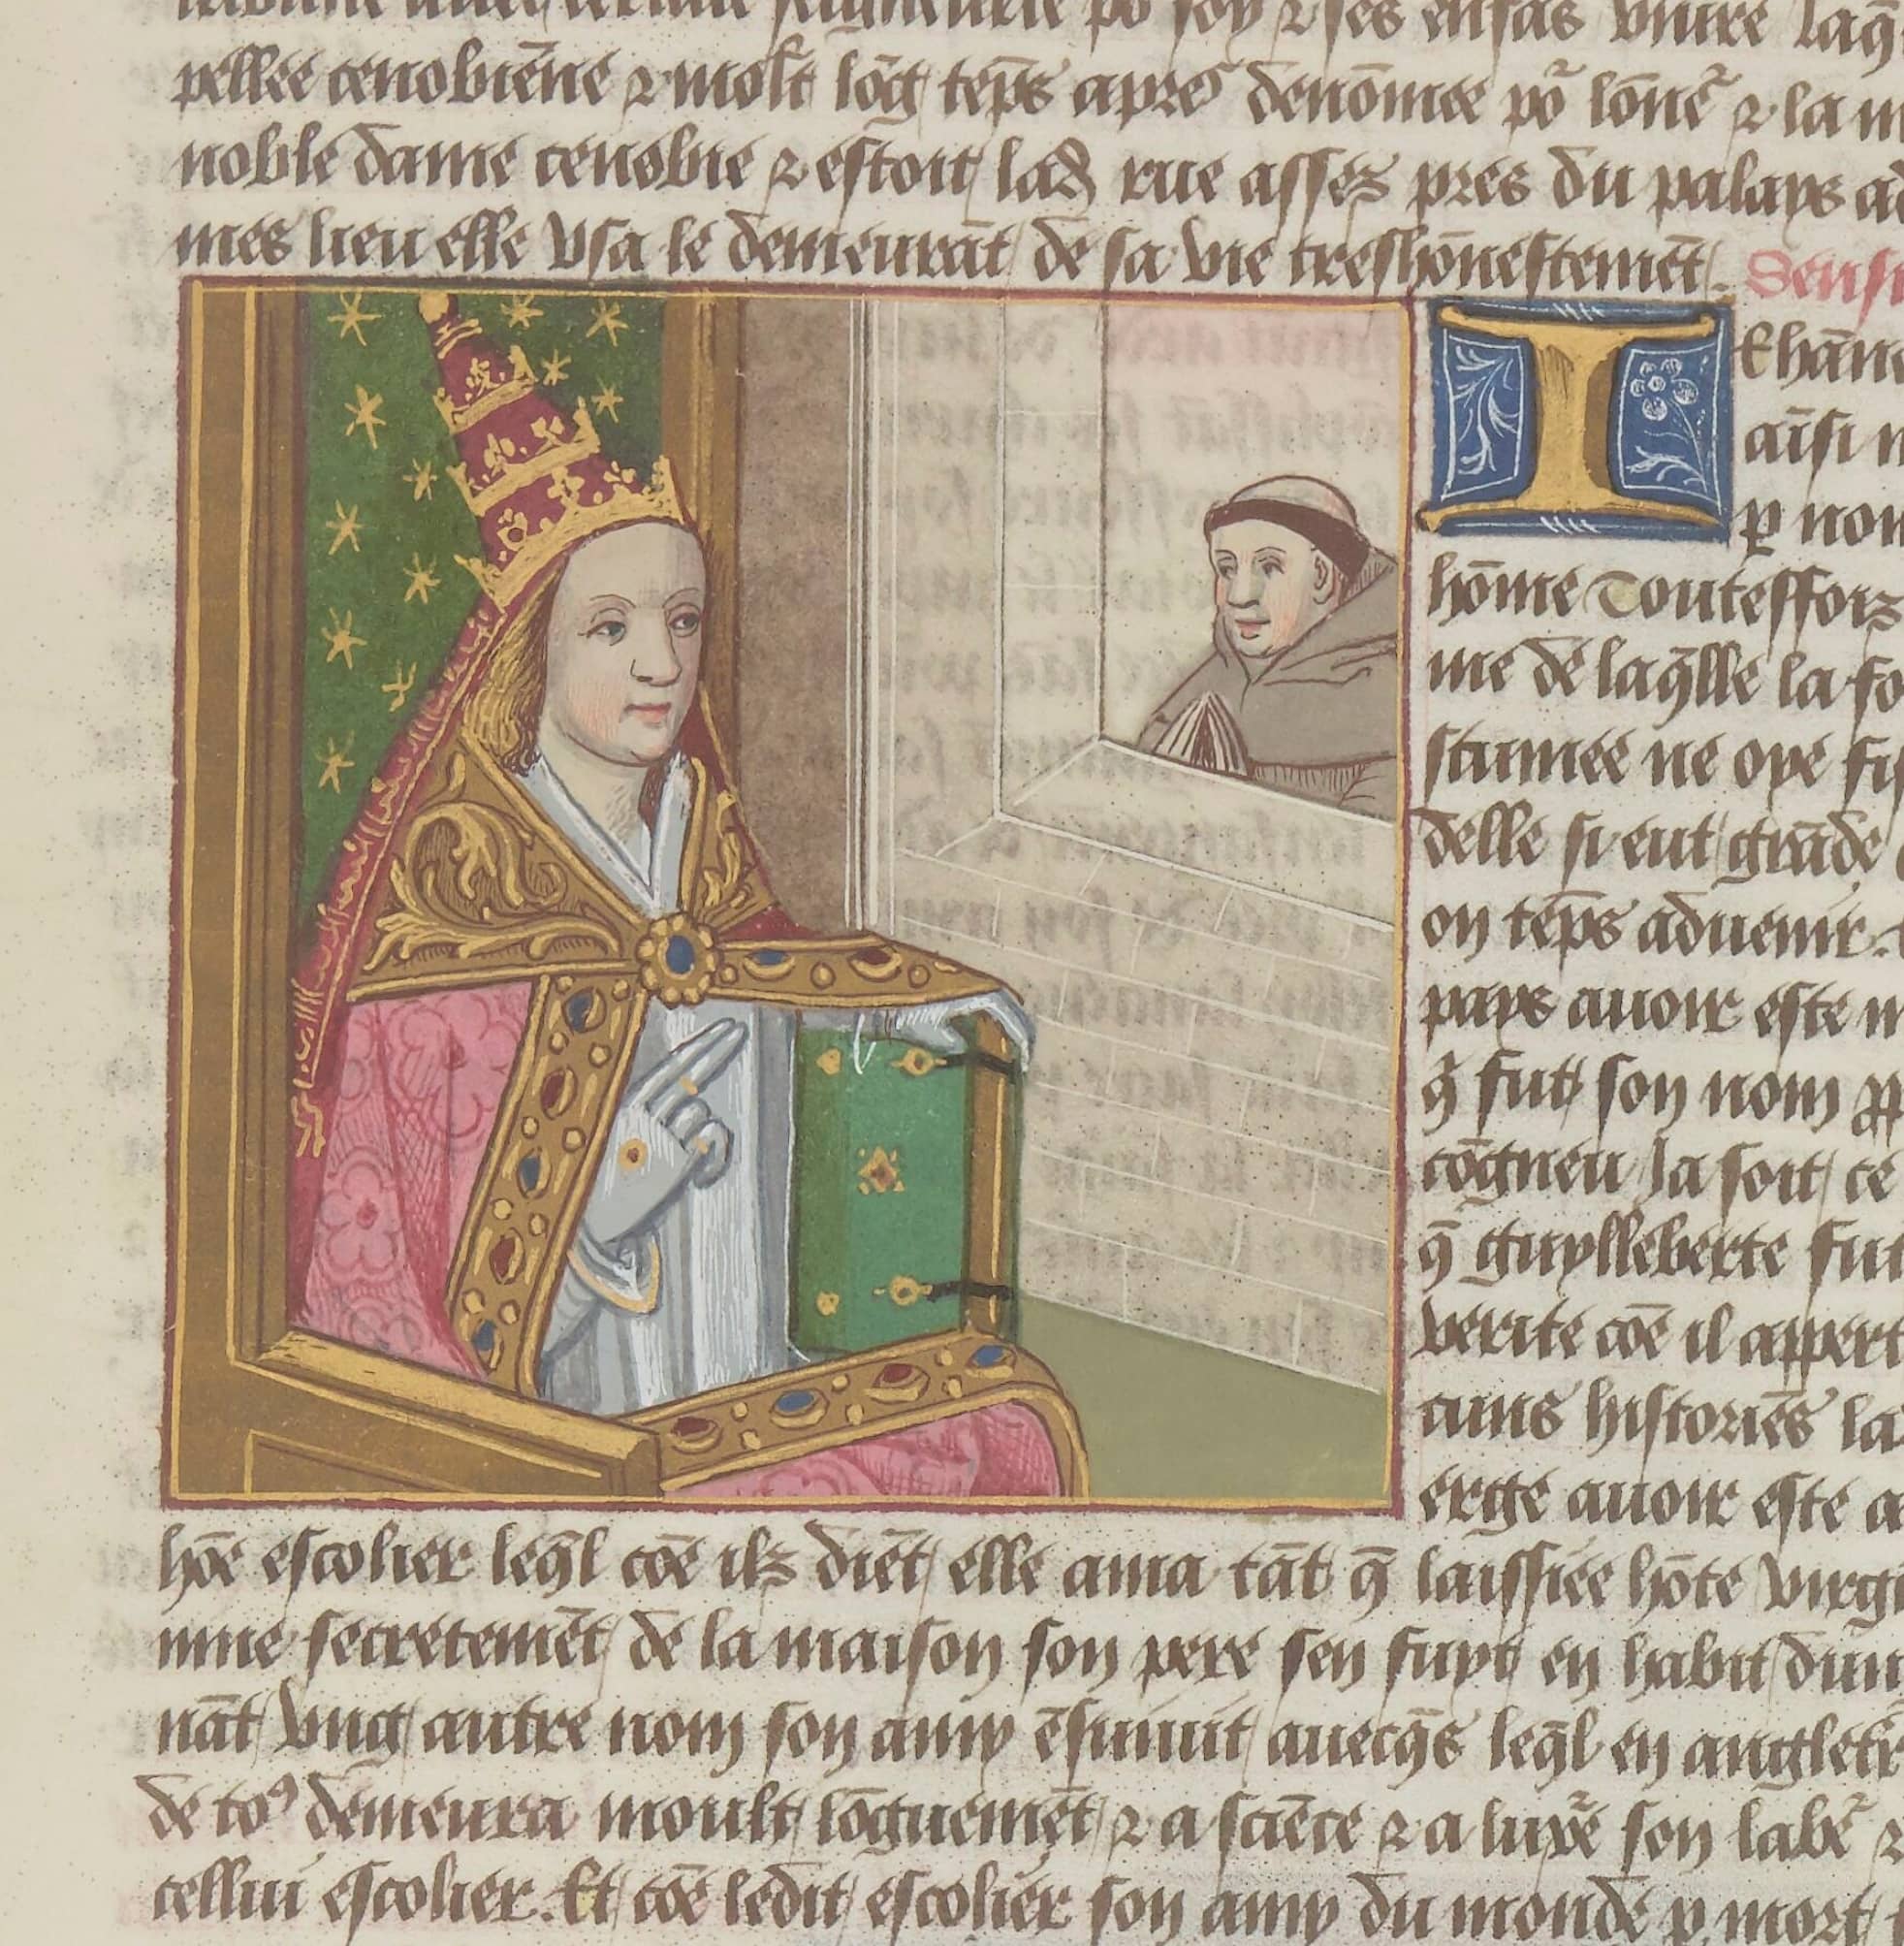 pellee cenobiēne ⁊ molt lōg tēps apres denōmee po᷑ lōne᷑ ⁊ la m
noble dame cenobie ⁊ estoit lad rue assez pres du palays ad
mes lieu elle vsa le demeurāt de sa vie treshōnestemēt.
I Ehan
aīsi
ꝑ nom
hōme Touteffoiz
me de laq̄lle la fo
stumee ne oye
delle si eut grāde
on tēps aduenir.
pays auoir este
q̄ fut son nom
cōgneu ja soit ce
q̄ guylleberte fut
verite cōe il appert
cuns histories la
erge auoir este a
hōe escolier leq̄l cōe ilz diēt elle ama tāt q̄ laissiee hōte virg
secretemēt de la maison son pere sen fuyt en habit dun
nāt vng autre nom son amy ēsuiuit auecq̄s leq̄l en angleter
de toꝰ demeura moult lōguemēt ⁊ a sciēce ⁊ a luxe᷑ son labe᷑ ⁊
cellui escolier. Et cōe ledit escolier son amy du monde ꝑ mort